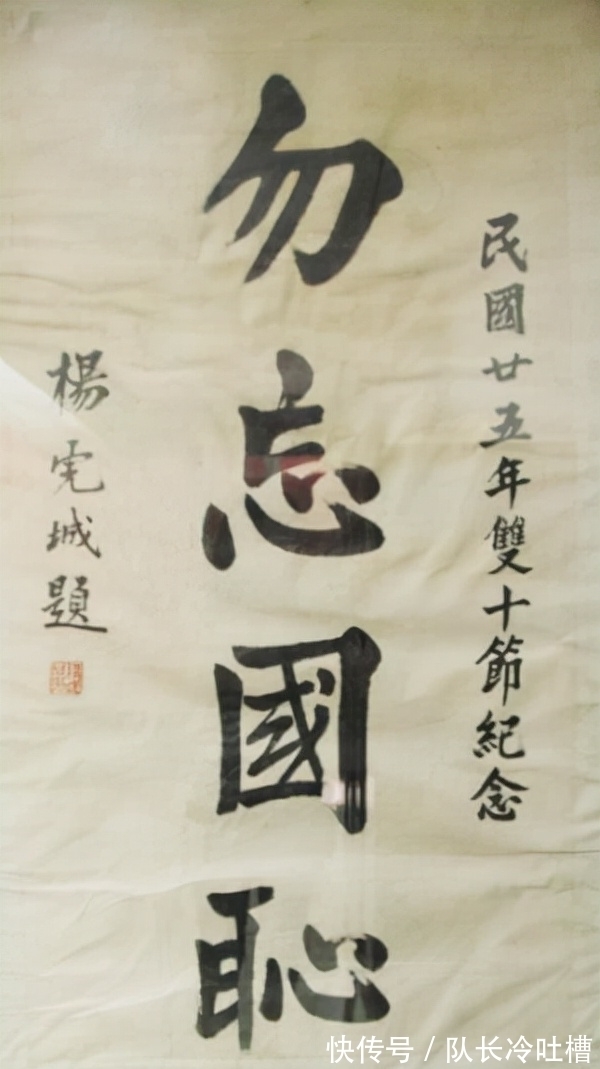 民國廿五年雙十節紀念
勿忘國恥
楊虎城題
快传号/队长冷吐槽